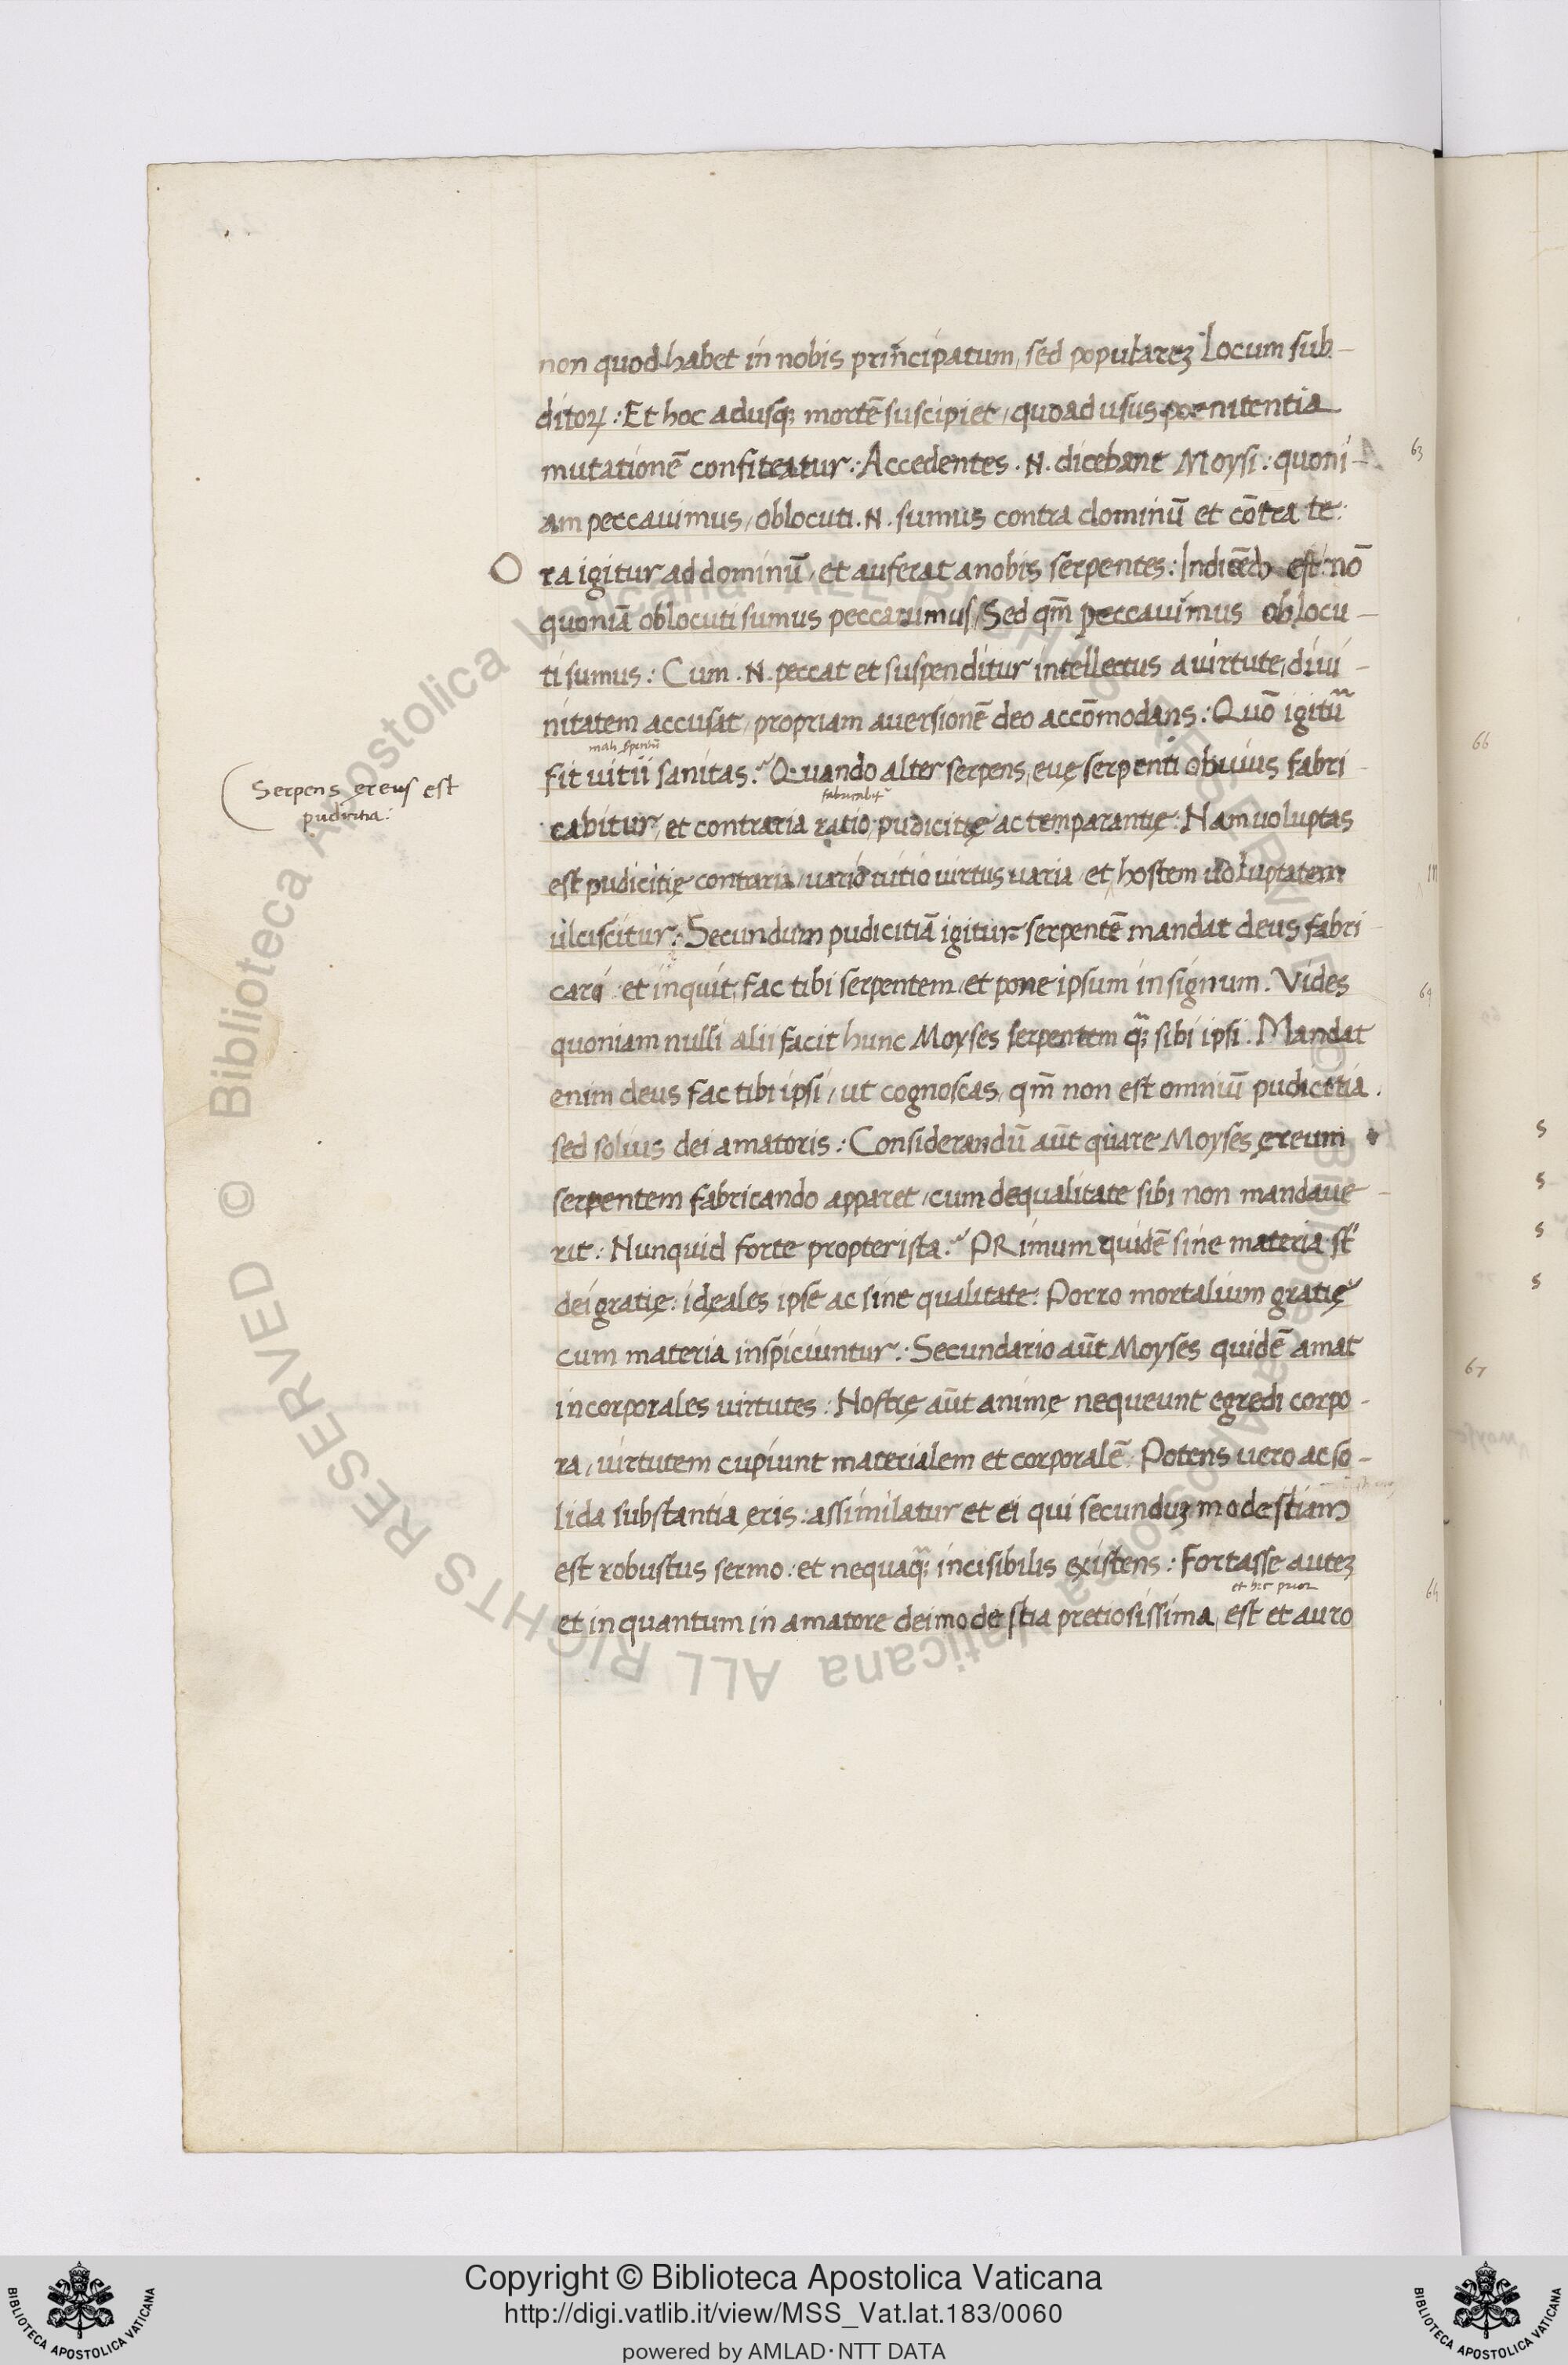 non quod habet in nobis prin̄cipatum, sed populareȝ locum sub-
ditoꝝ: Et hoc adusqꝫ mortē suscipiet, quoad usus poenitentia
mutationē confiteatur: Accedentes .N. dicebant Moysi: quoni-
am peccavimus, oblocuti .N. sumus contra dominū et cōtra te:
O ra igitur ad dominū, et auferat a nobis serpentes: Indicēdū est: nō
quoniā oblocuti sumus peccavimus, Sed qm̄ peccavimus oblocu-
ti sumus: Cum .N. peccat et suspenditur intellectus a virtute, divi-
nitatem accusat, propriam aversionē deo accōmodans: Quō igitur
fit vitii sanitas? Quando alter serpens, evę serpenti obvius fabri-
fabricabit
cabitur, et contraria ratio, pudicitię ac temparantię: Nam voluptas
est pudicitię contraria, vario vitio virtus varia, et hostem voluptatem
ulciscitur: Secundum pudicitiā igitur serpentē mandat deus fabri-
cari: et inquit, fac tibi serpentem, et pone ipsum in signum. Vides
quoniam nulli alii facit hunc Moyses serpentem qꝫ sibi ipsi. Mandat
enim deus fac tibi ipsi, ut cognoscas, qm̄ non est omniū pudicitia.
sed solius dei amatoris: Considerandū aūt quare Moyses ęreum
serpentem fabricando apparet, cum de qualitate sibi non mandave-
rit: Nunquid forte propter ista? PRimum quidē sine materia st̄
dei gratię: ideales ipse ac sine qualitate: Porro mortalium gratię
cum materia inspiciuntur: Secundario aūt Moyses quidē amat
incorporales virtutes: Nostrę aūt animę nequeunt egredi corpo-
ra, virtutem cupiunt materialem et corporalē: Potens vero ac so-
lida substantia ęris: assimilatur et ei qui secunduȝ modestiam
est robustus sermo: et nequaqꝫ incisibilis existens: Fortasse auteȝ
et in quantum in amatore dei modestia pretiosissima, est et auro
Serpens ęreus est
pudicitia:
63
64
66
67
64
S
S
S
S
Copyright © Biblioteca Apostolica Vaticana
http://digi.vatlib.it/view/MSS_Vat.lat.183/0060
powered by AMLAD·NTT DATA
BIBLIOTECA APOSTOLICA VATICANA
BIBLIOTECA APOSTOLICA VATICANA
© Biblioteca Apostolica Vaticana ALL RIGHTS RESERVED © Biblioteca Apostolica Vaticana ALL RIGHTS RESERVED